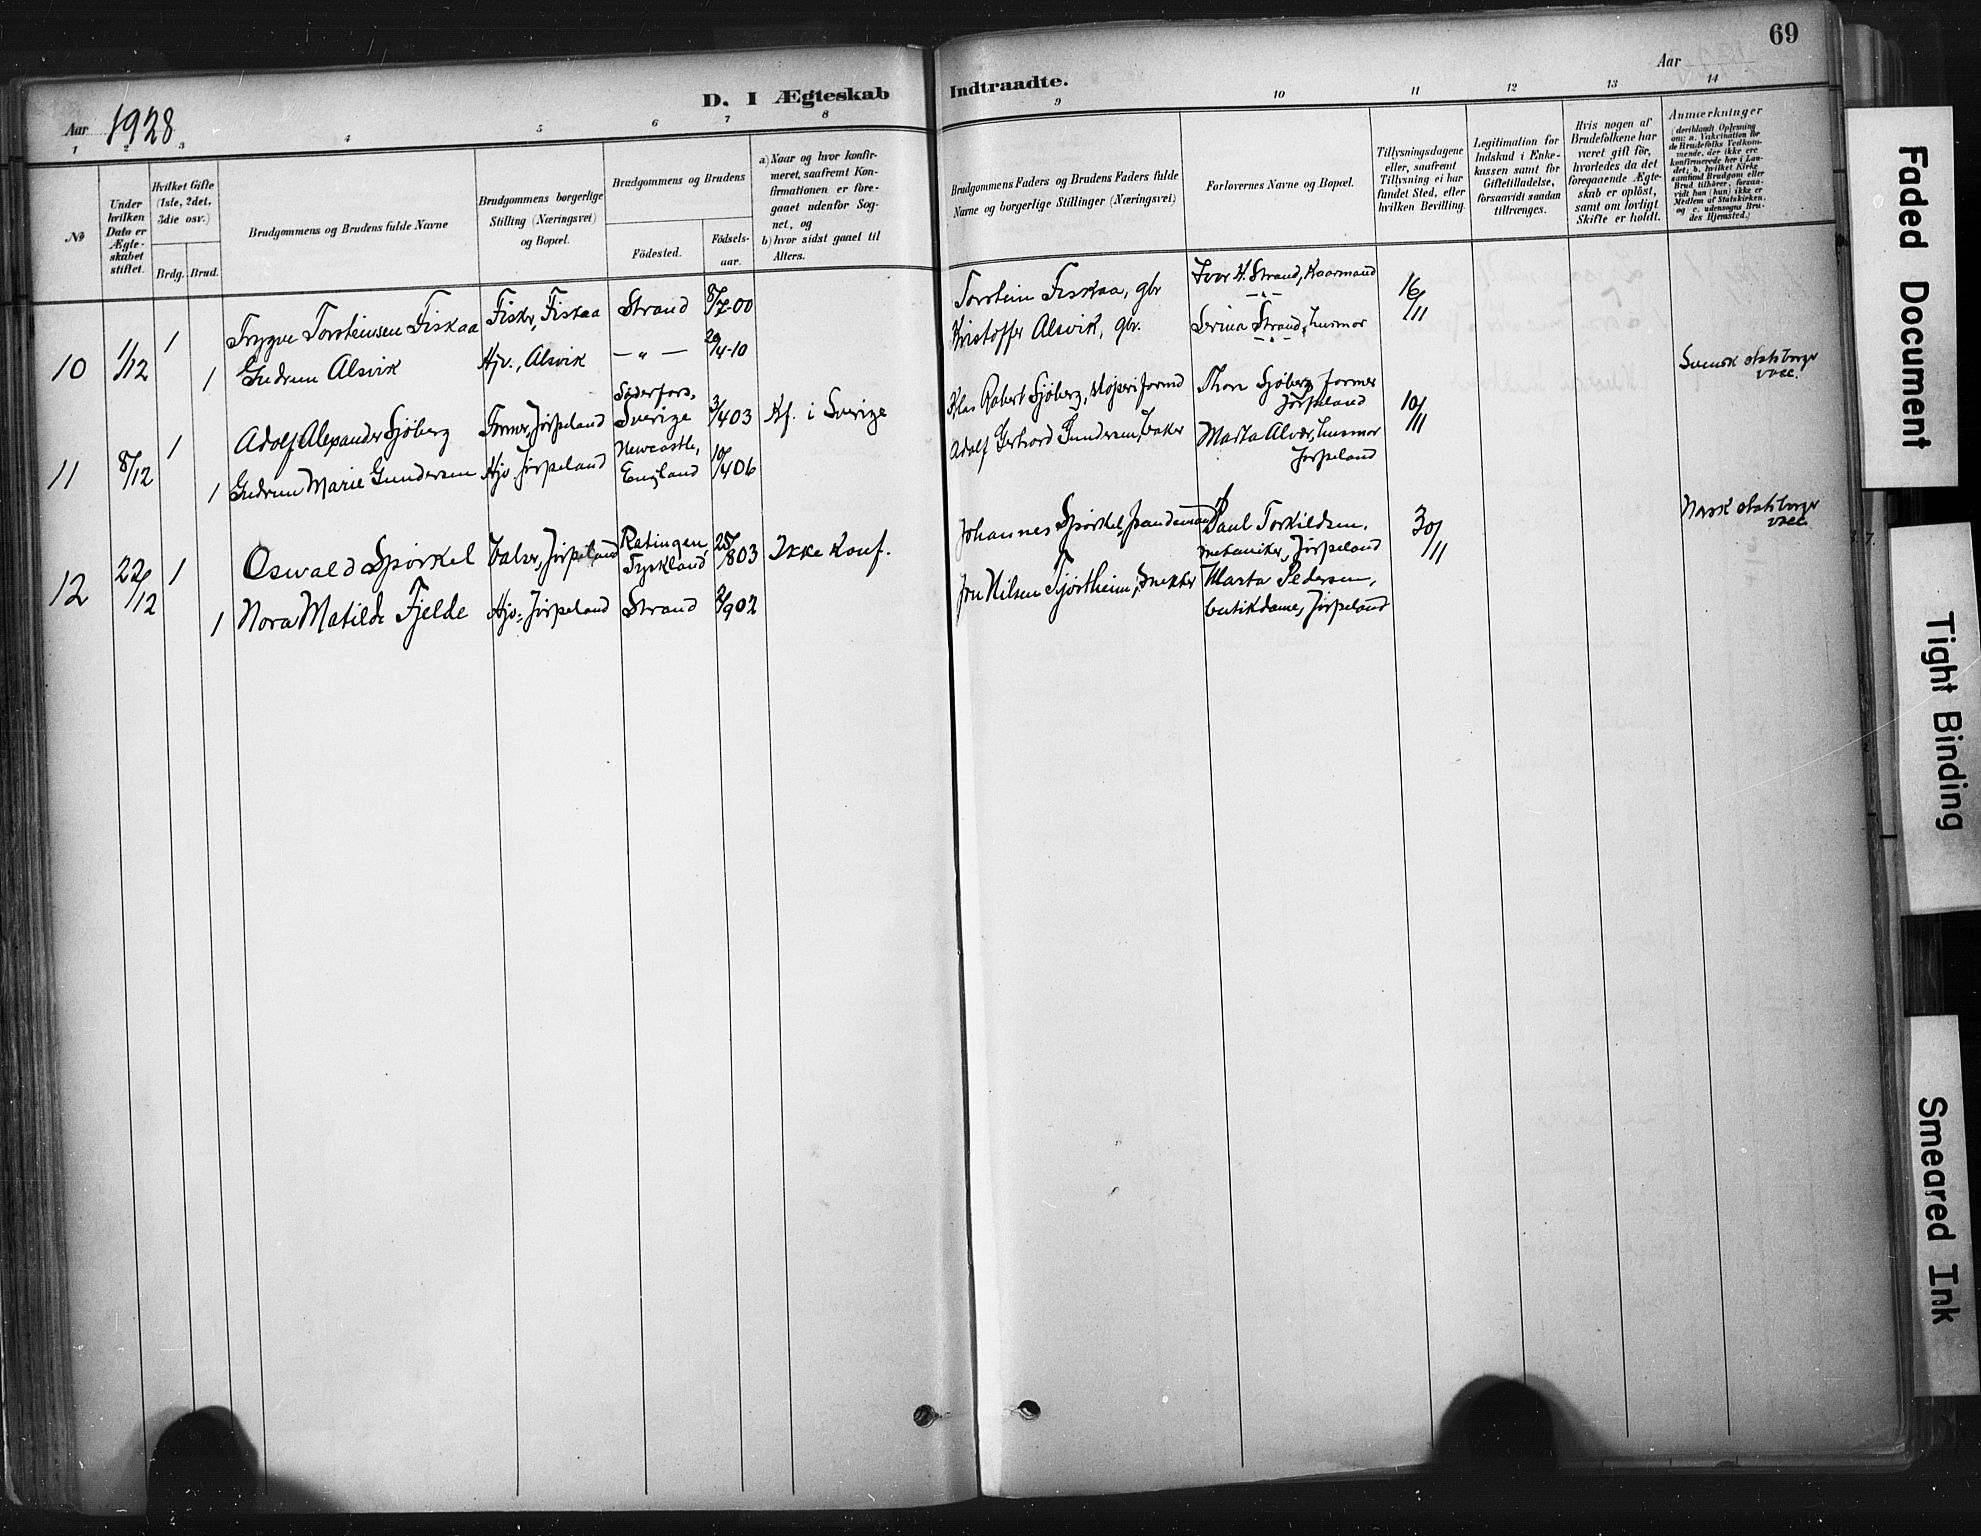 69
D. I Ægteskab Indtraadte.
Aar 1928
Aar
1 2 3 4 5 6 7 8 9 10 11 12 13 14
№
Under hvilken Dato er Ægteskabet stiftet.
Hvilket Gifte (1ste, 2det, 3die osv.)
Brdg. Brud.
Brudgommens og Brudens fulde Navne
Brudgommens borgerlige Stilling (Næringsvei) og Bopæl.
Brudgommens og Brudens
Födested.
Födselsaar.
a) Naar og hvor konfirmeret, saafremt Konfirmationen er foregaaet udenfor Sognet, og
b) hvor sidst gaaet til Alters.
Brudgommens Faders og Brudens Faders fulde Navne og borgerlige Stillinger (Næringsvei)
Forlovernes Navne og Bopæl.
Tillysningsdagene eller, saafremt Tillysning ei har fundet Sted, efter hvilken Bevilling.
Legitimation for Indskud i Enkekassen samt for Giftetilladelse, forsaavidt saadan tiltrænges.
Hvis nogen af Brudefolkene har været gift før, hvorledes da det foregaaende Ægteskab er oplöst, samt om lovligt Skifte er holdt.
Anmærkninger
(deriblandt Oplysning om: a. Vakcination for de Brudefolks Vedkommende, der ikke ere konfirmerede her i Landet; b. hvilket Kirkesamfund Brudgom eller Brud tilhörer, forsaavidt han (hun) ikke er Medlem af Statskirken, og c. udensogns Brudes Hjemsted.)
10 1/12 1 Trygve Torsteinsen Fiskaa Fisker, Fiskaa Strand 8/7-00 Torstein Fiskaa, gbr Ivar H. Strand, Kaarmand 16/11
—"—
1 Gudrun Alsvik Hjv., Alsvik — " — 29/4-10 Kristoffer Alsvik, gbr. Serina Strand, husmor
—"—
11 8/12 1 Adolf Alexander Sjöberg Former, Jörpeland Söderfors, Sverige 3/4 03 Kf. i Sverige Klas Robert Sjöberg, støperiformd Thore Sjöberg, former Jörpeland 10/11 Svensk statsborger vacc.
1 Gudrun Marie Gundersen Hjv. Jörpeland Newcastle, England 10/4 06 Adolf Gundersen, baker Marta husmor Jörpeland
12 22/12 1 Oswald Spörkel Valser, Jörpeland Ratingen, Tyskland 25/8 03 Ikke Konf. Johannes Spörkel, Paul Torkildsen, mekaniker, Jörpeland 30/11 Norsk statsborger vacc.
1 Nora Matilde Fjelde Hjv. Jörpeland Strand 2/9 02 Jon Nilsen Tjörtheim, Snekker Marta Pedersen, butikdame, Jörpeland
Faded Document
Tight Binding
Smeared Ink